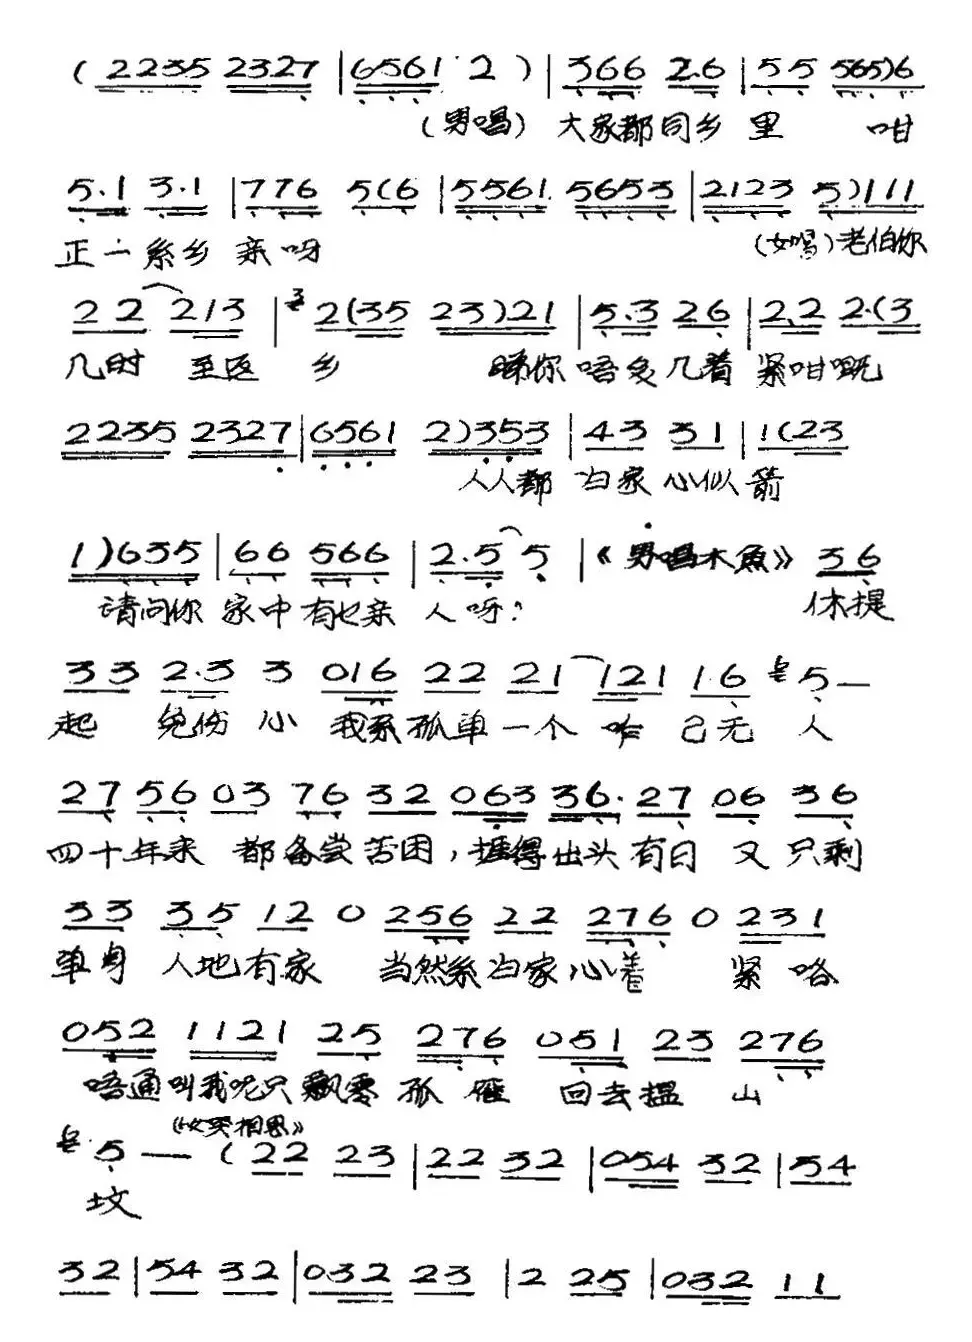 ( 2235 2327 | 6561 · 2 ) | 366 2.6 | 55 565) 6
(男唱) 大家都同乡 里 咁
5.1 3.1 | 776 5(6 | 5561 5653 | 2123 5) 111
正一系乡 亲呀 (女唱) 老伯你
22 213 | 3 2(35 23)21 | 5.3 26 | 22 2.(3
几时 至返 乡 睇你唔多几着 紧咁嘅
2235 2327 | 6561 2)353 | 43 31 | 1(23
人人都 归家 心似 箭
1)635 | 66 566 | 2.5 5 | 《男唱木鱼》 36
请问你 家中有乜亲 人呀? 休提
33 2.3 3 016 22 21 121 1.6 5 —
起 绝伤 心 我系孤单一个 咋 已无 人
27 56 03 76 32 063 36. 27 06 36
四十年来 都备尝苦困，捱得出头有日 又 只剩
33 35 12 0 256 22 276 0 231
单身 人地有家 当然系归家心着 紧 咯
052 1121 25 276 051 23 276
唔通叫我呢只飘零 孤 雁 回去搵 山
《女哭相思》
5 — ( 22 23 | 22 32 | 054 32 | 54
坟
32 | 54 32 | 032 23 | 2 25 | 032 11